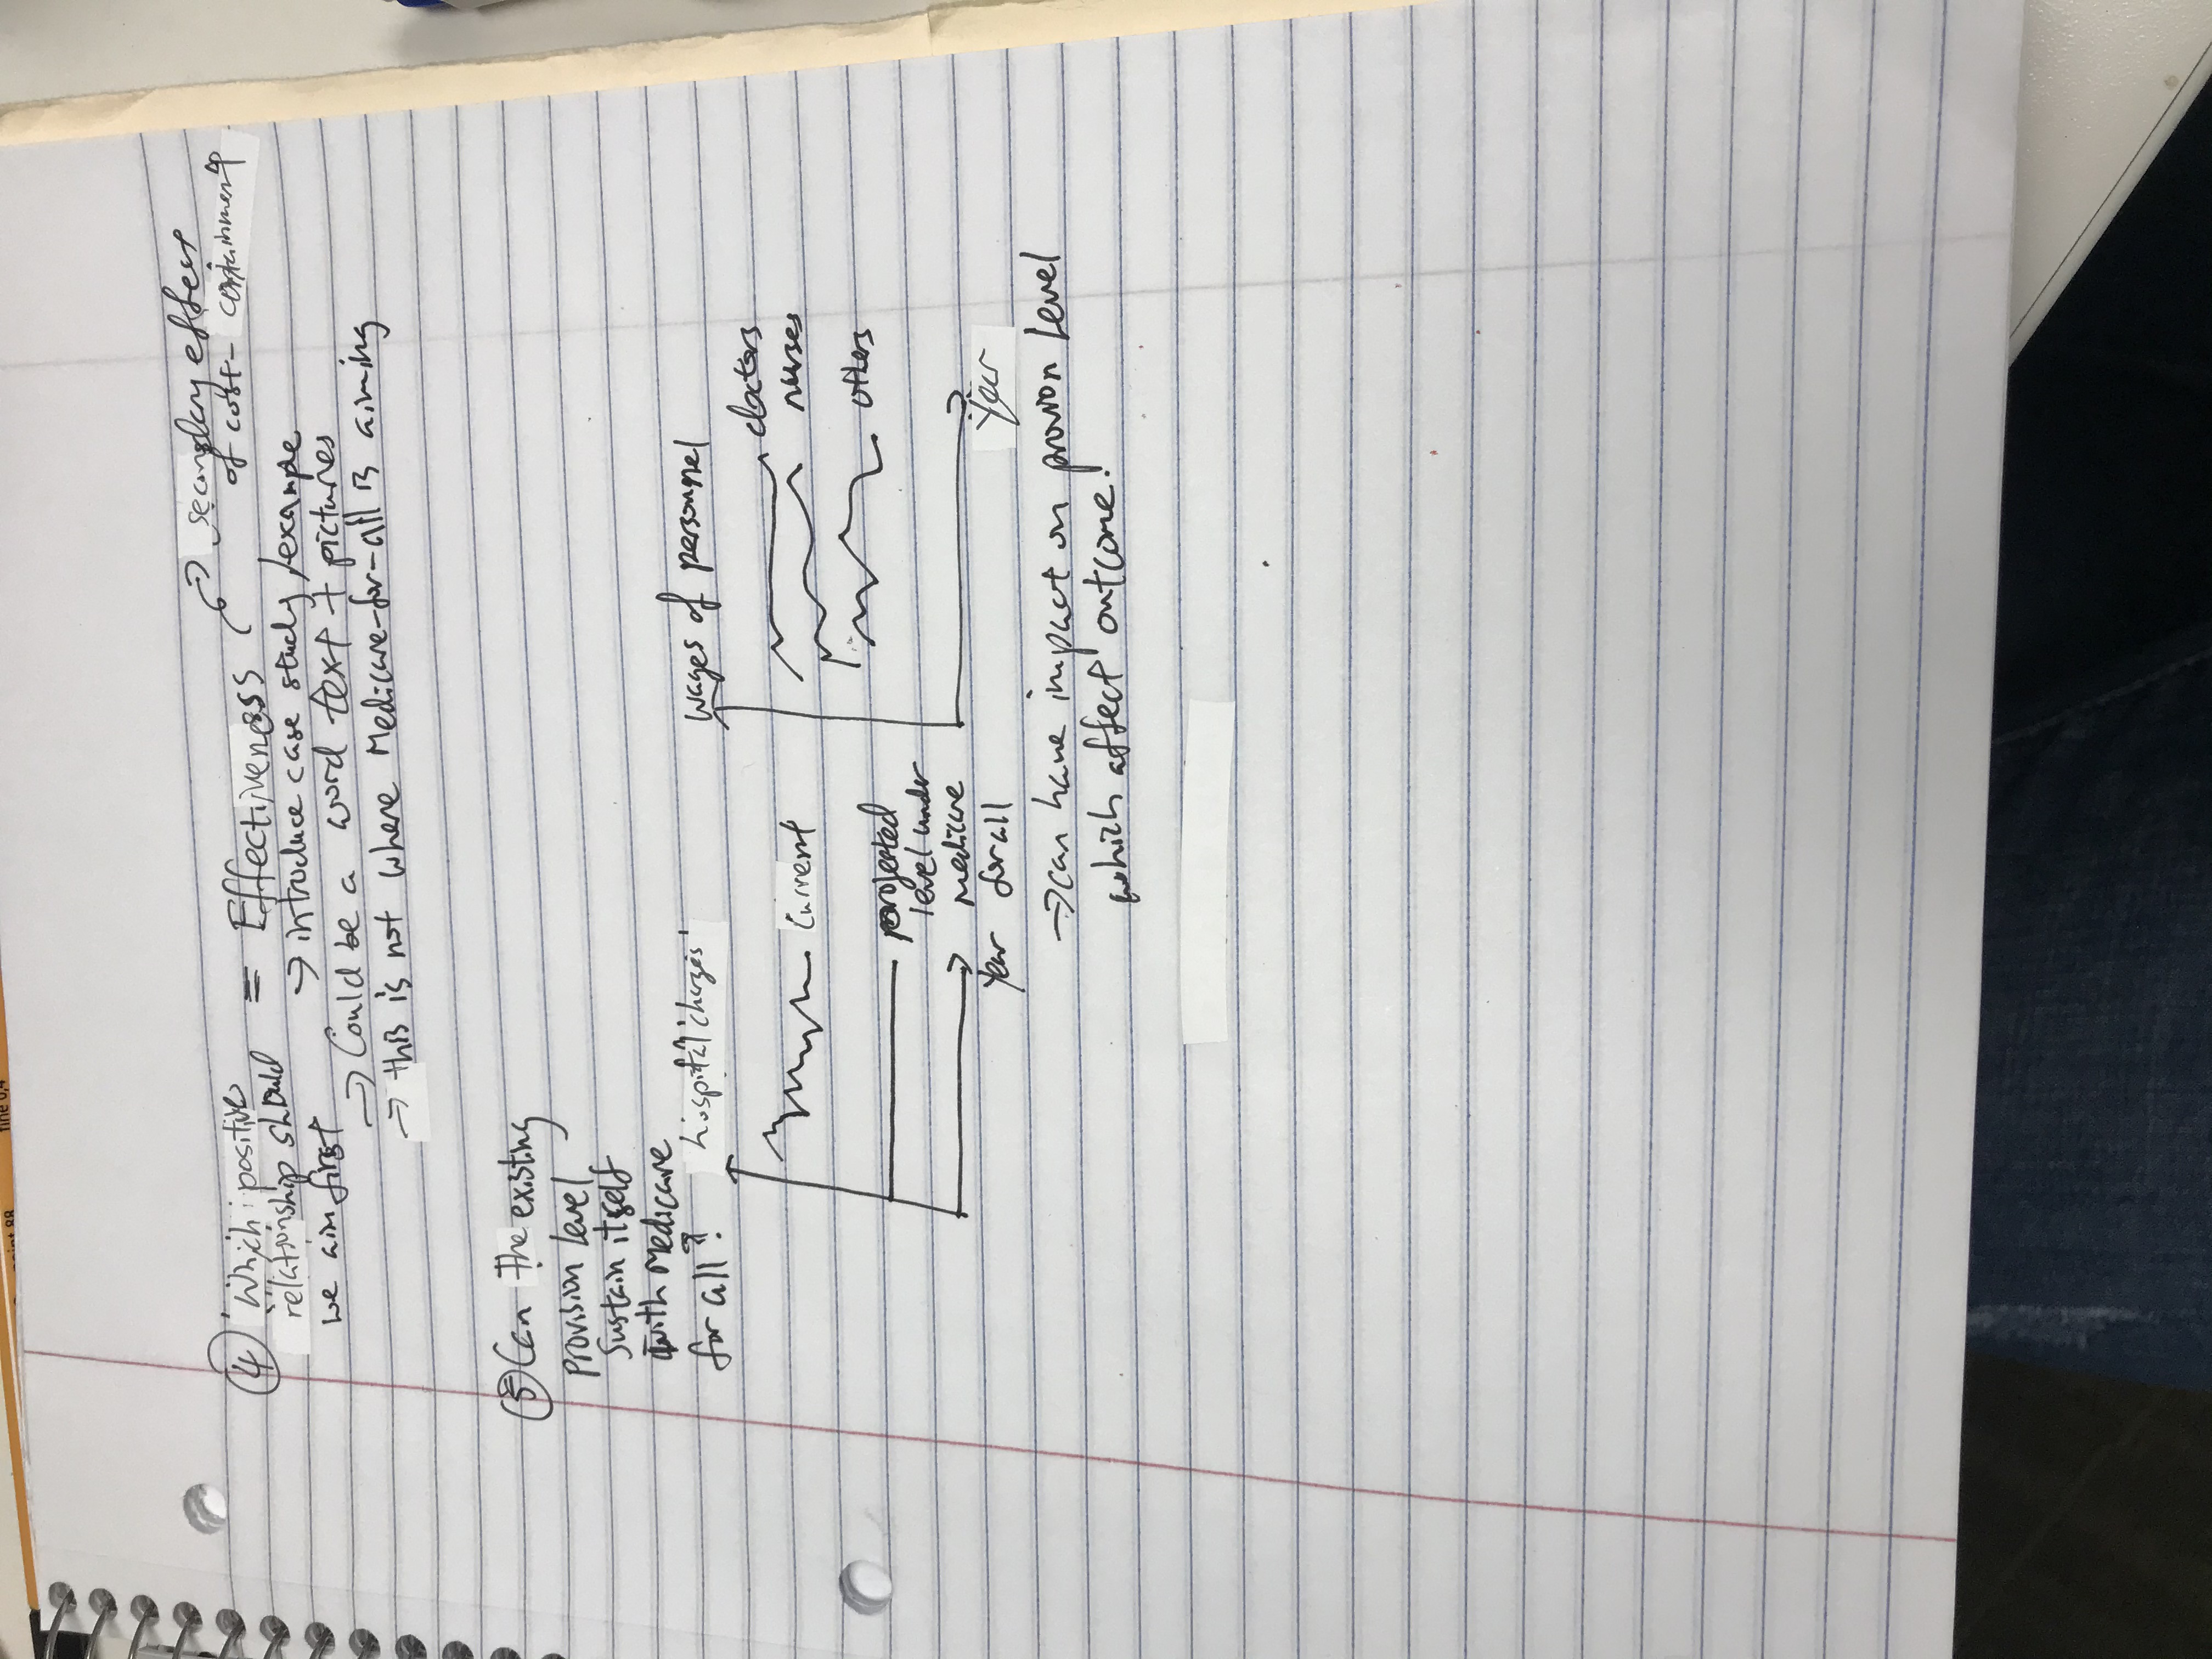 point 88
fine 0,4
④ Which positive
relationship should
we aim first
= Effectiveness
secondary effect
of cost-containment
→ introduce case study/example
→ Could be a word text + pictures
→ this is not where Medicare-for-all is aiming
⑤ Can the existing
provision level
sustain itself
with Medicare
for all?
hospital 'charges'
current
projected
level under
medicare
for all
Year
wages of personnel
doctors
nurses
others
Year
→ can have impact on provion level
which affect outcome!